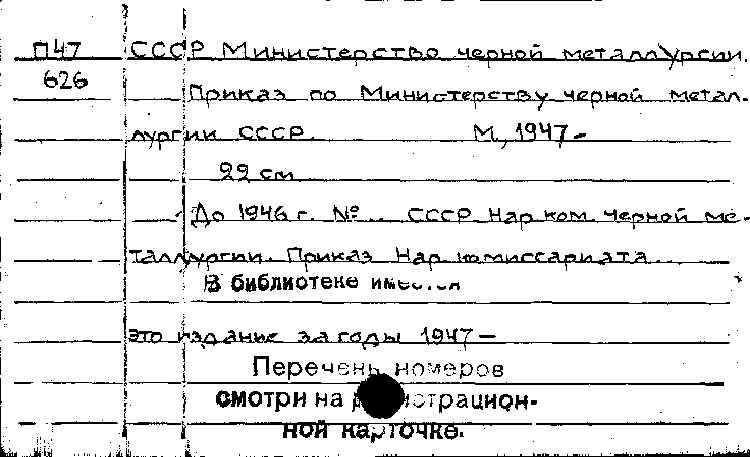 П47 СССР Министерство черной металлургии.
626 Приказ по Министерству черной метал-
лургии СССР. М., 1947-
22 см
До 1946 г. № .. СССР Нар.ком. черной ме-
таллургии. Приказ Нар. комиссариата...
В библиотеке имеется
это издание за годы 1947—
Перечень номеров
смотри на регистрацион-
ной карточке.